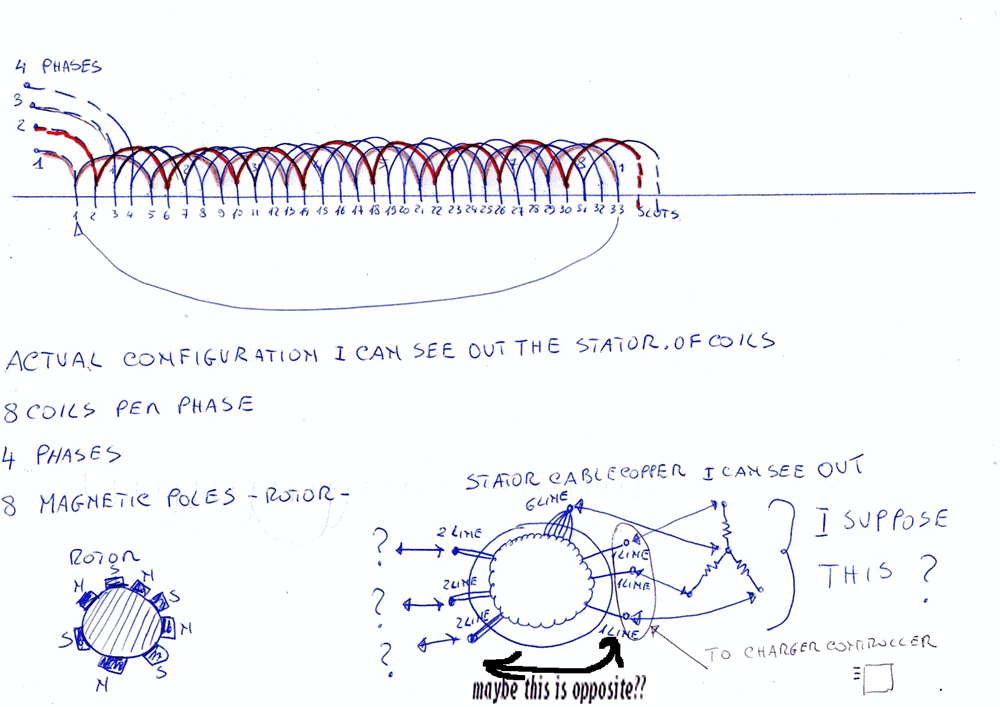 4 PHASES
3
2
1
1 2 3 4 5 6 7 8 9 10 11 12 13 14 15 16 17 18 19 20 21 22 23 24 25 26 27 28 29 30 31 32 33 SLOTS
ACTUAL CONFIGURATION I CAN SEE OUT THE STATOR. OF COILS
8 COILS PER PHASE
4 PHASES
8 MAGNETIC POLES -ROTOR-
STATOR CABLE COPPER I CAN SEE OUT
6 LINE
2 LINE
?
1 LINE
I SUPPOSE
THIS ?
ROTOR
S
N
N
S
S
N
N
S
1 LINE
?
2 LINE
2 LINE
?
1 LINE
TO CHARGER CONTROLLER
maybe this is opposite??